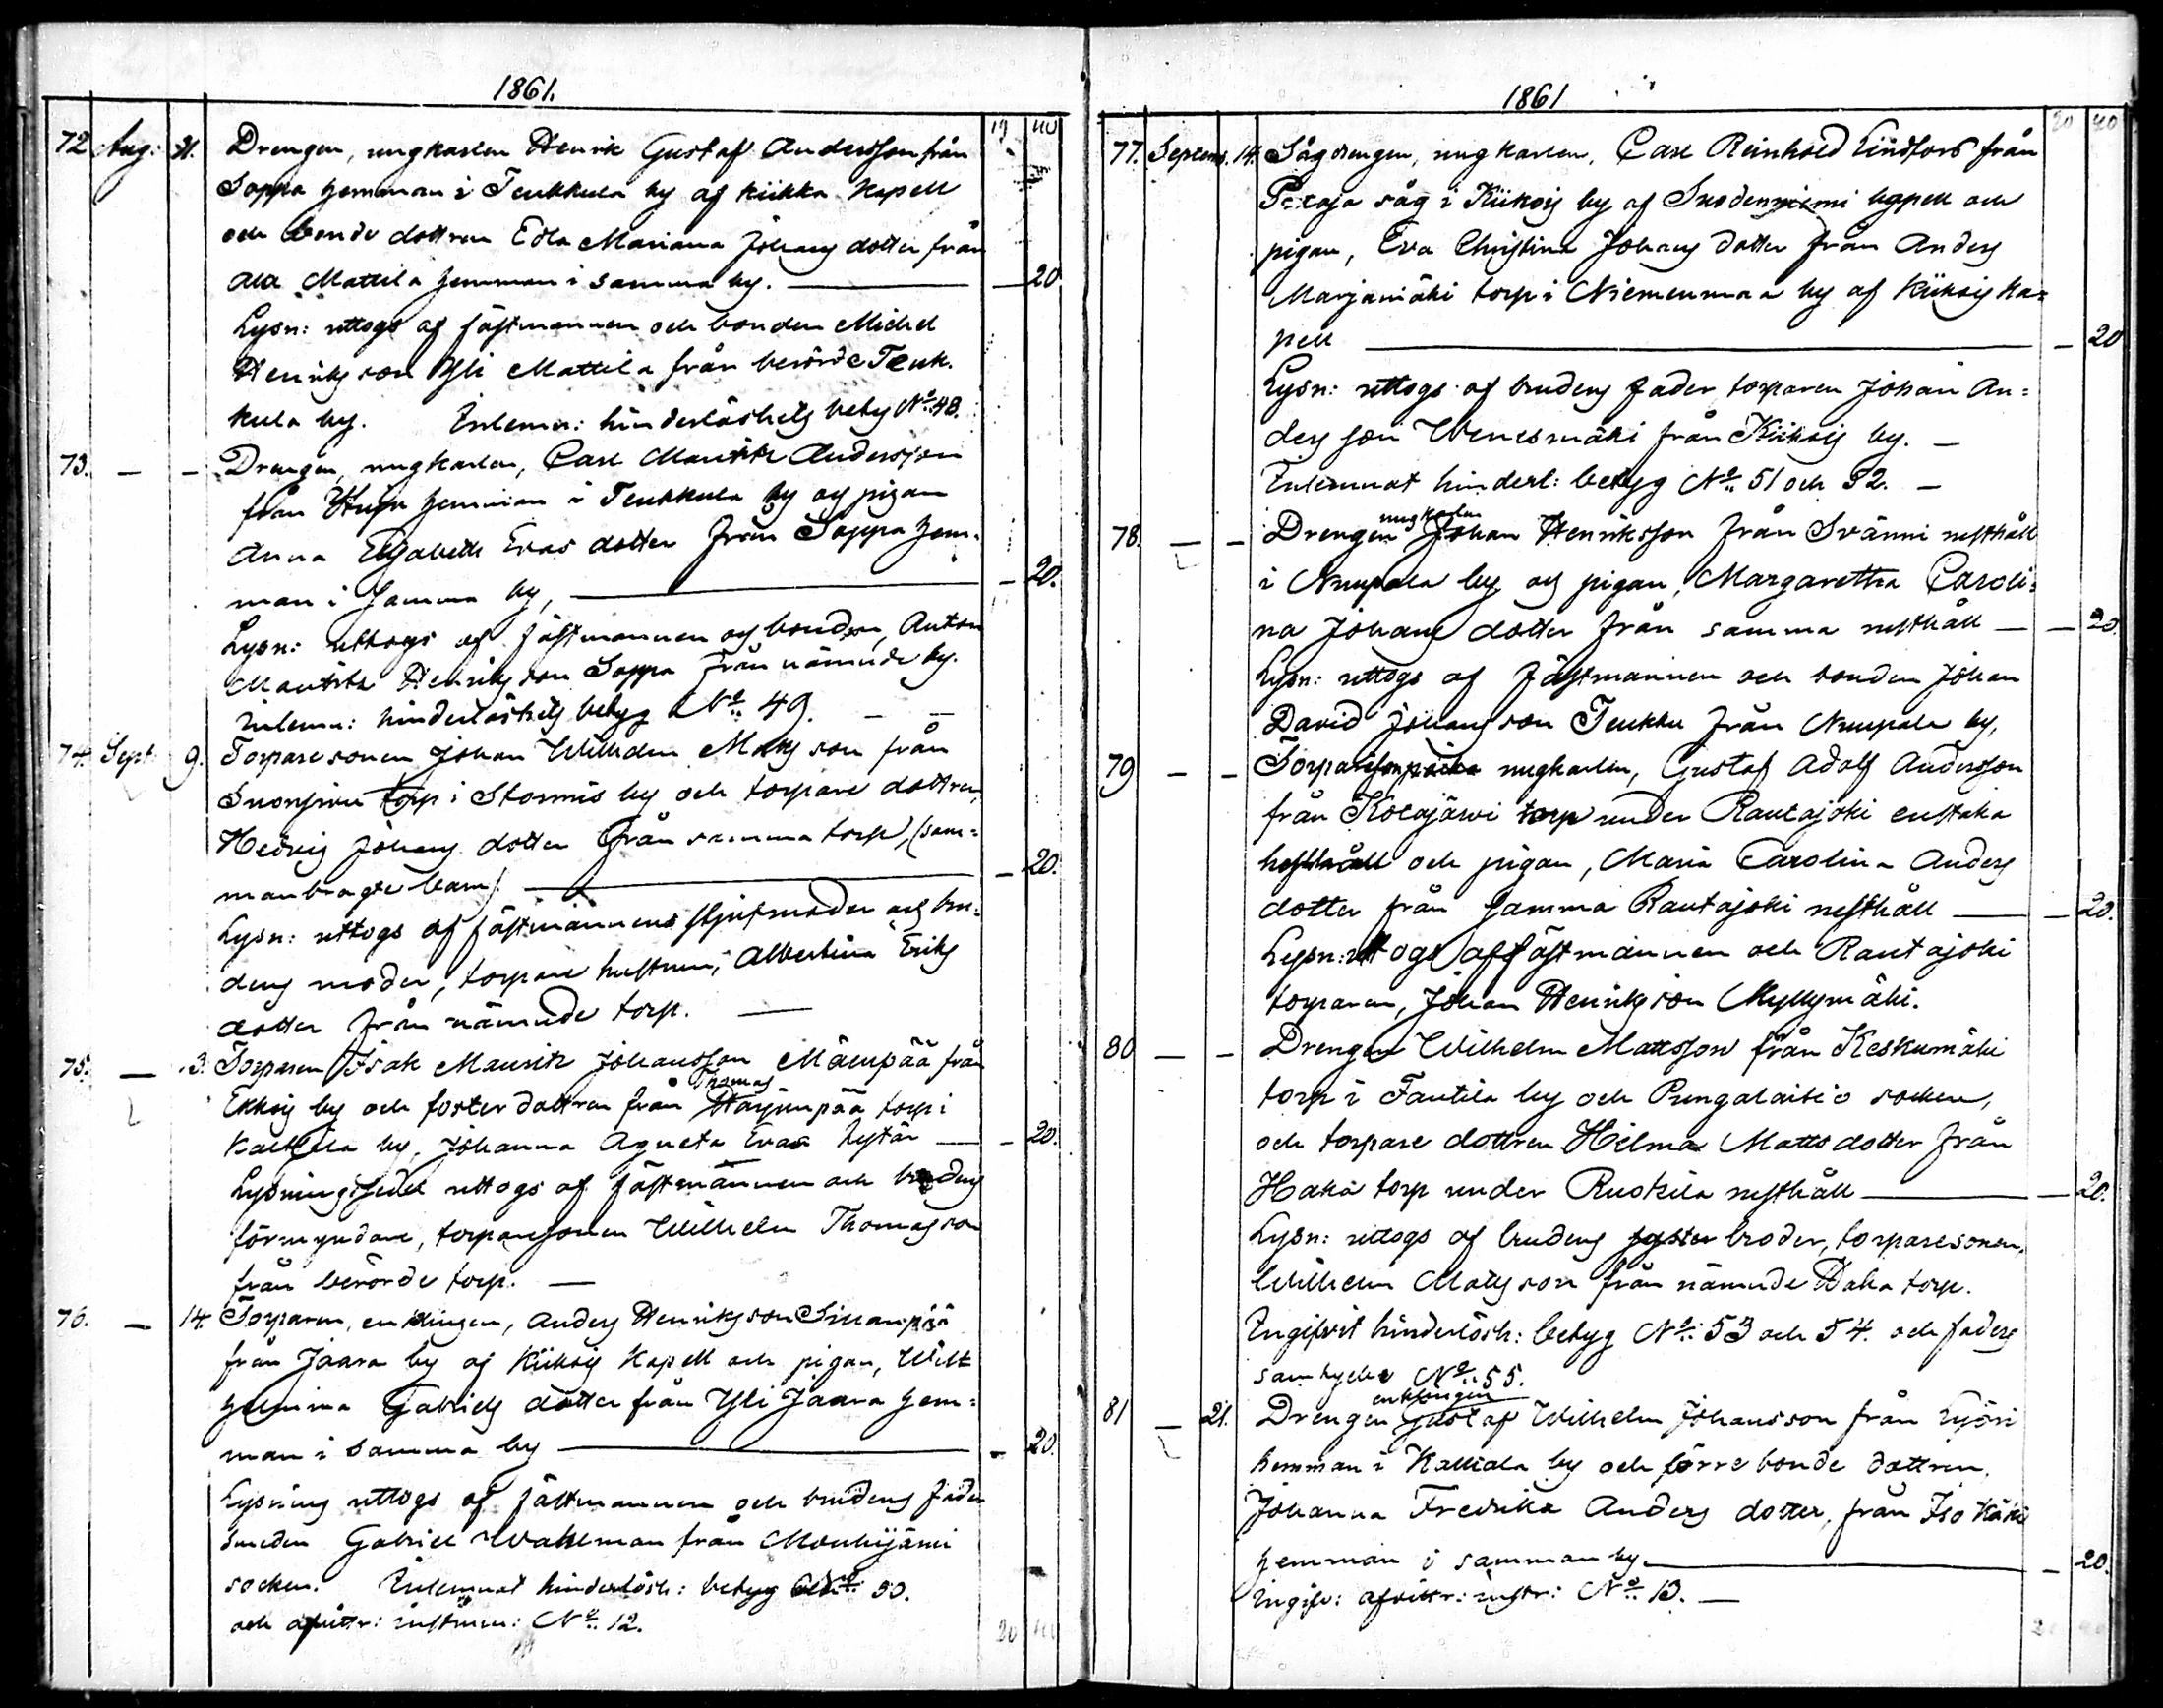 1861.
19 40
72 Aug: 31. Drengen, ungkarlen Henrik Gustaf Andersson från
Soppa hemman i Teukkula by af Kiikka Kapell
och bonde dottren Edla Mariana Johans dotter från
Ala Mattila hemman i samma by. — 20
Lysn: uttogs af fästmannen och bonden Michel
Henriksson Yli Mattila från berörde Teuk-
kula by. Inlemn: hinderlöshets betyg No. 48.
73. — — Drengen, ungkarlen, Carl Mauritz Andersson
från hemman i Teukkula by och pigan
Anna Elisabeth Evas dotter från Soppa hem-
man i samma by, — 20.
Lysn: uttogs af fästmannen och bonden, Anton
Mauritz Henriksson Soppa från nämnde by.
Inlemn: hinderlöshets betyg No. 49. — —
74. Sept: 9. Torpare sonen Johan Wilhelm Matsson från
torp i Stormis by och torpare dottren,
Hedvig Johans dotter från samma torp, (sam=
manbragte barn). — 20.
Lysn: uttogs af fästmannens stjufmoder och bru-
dens moder, torpare hustrun, Albertina Eriks
dotter från nämnde torp. —
75. — 13. Torparen Isak Maurits Johansson Mäenpää från
Ekkois by och fosterdottren från Thomas Harjunpää torp i
by, Johanna Agneta Evas — 20.
Lysningssedel uttogs af fästmannen och brudens
förmyndare, torparesonen Wilhelm Thomasson
från berörde torp. —
76. — 14. Torparen, enklingen, Anders Henriksson
från Jaara by af Kiikois Kapell och pigan, Wilh
helmina Gabriels dotter från Yli Jaara hem=
man i samma by — 20.
Lysning uttogs af fästmannen och brudens fader
smeden Gabriel Wahlman från Mouhijärvi
socken. Inlemnat hinderlösh: betyg No. 50.
och afvittr: instrum: No. 12.
20 40
1861
20 40
77. Septemb. 14. Sågdrengen, ungkarlen, Carl Reinhold Lindfors från
såg i Kiikois by af Suodenniemi kapell och
pigan, Eva Christina Johans dotter från Anders
Marjamäki torp i Niemenmaa by af Kiikois ka=
pell — 20
Lysn: uttogs af brudens fader torparen Johan An=
dersson Wenesmäki från Kiikois by. —
Inlemnat hinderl: betyg No. 51 och 52. —
78. — — Drengen ungkarlen Johan Henriksson från Svänni rusthåll
i Nuupala by och pigan, Margaretha Caroli=
na Johans dotter från samma rusthåll — 20.
Lysn: uttogs af fästmannen och bonden Johan
David Johansson Teukku från Nuupala by,
79 — — ungkarlen, Gustaf Adolf Andersson
från Kotajärvi torp under Rautajoki enstaka
rusthåll och pigan, Maria Carolina Anders
dotter från samma Rautajoki rusthåll — 20.
Lysn: uttogs af fästmannen och Rautajoki
torparen, Johan Henriksson Myllymäki.
80 — — Drengen Wilhelm Mattsson från Keskumäki
torp i Fautila by och Pungalaitio socken,
och torpare dottren Hilma Matts dotter från
Haka torp under Ruokila rusthåll — 20.
Lysn: uttogs af brudens broder, torparesonen,
Wilhelm Matsson från nämnde Haka torp.
Ingifvit hinderlösh: betyg No. 53 och 54. och faders
samtycke No. 55.
81 — 21. Drengen enklingen Gustaf Wilhelm Johansson från Lyöri
hemman i Kalliala by och förre bonde dottren,
Johanna Fredrika Anders dotter, från Iso Käki
hemman i samman by — 20.
Ingifv: afvittr: instr: No. 13. —